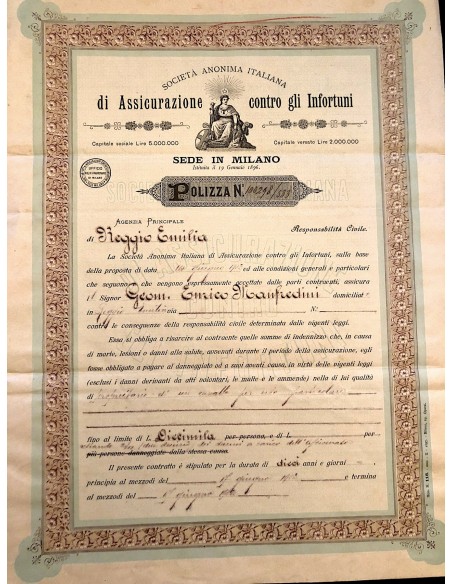 SOCIETÀ ANONIMA ITALIANA
di Assicurazione contro gli Infortuni
Capitale sociale Lire 5.000.000 Capitale versato Lire 2.000.000
SEDE IN MILANO
Istituita il 19 Gennaio 1896.
POLIZZA N.
AGENZIA PRINCIPALE
di Reggio Emilia Responsabilità Civile.
La Società Anonima Italiana di Assicurazione contro gli Infortuni, sulla base
della proposta di data giugno ed alle condizioni generali e particolari
che seguono e che vengono espressamente accettate dalle parti contraenti, assicura
il Signor Geom. Enrico Manfredini domiciliato
in Reggio Emilia via N.°
contro le conseguenze della responsabilità civile determinata dalle vigenti leggi.
Essa si obbliga a risarcire al contraente quelle somme di indennizzo che, in causa
di morte, lesioni o danni alla salute, avvenuti durante il periodo della assicurazione, egli
fosse obbligato a pagare al danneggiato od a suoi aventi causa, in virtù delle vigenti leggi
(esclusi i danni derivanti da atti volontari, le multe e le ammende) nella di lui qualità
di proprietario d' un cavallo per uso particolare
fino al limite di L. Diecimila per persona, e di L. per
più persone danneggiate dalla stessa causa
Il presente contratto è stipulato per la durata di dieci anni e giorni
principia al mezzodì del 1° giugno e termina
al mezzodì del 1° giugno